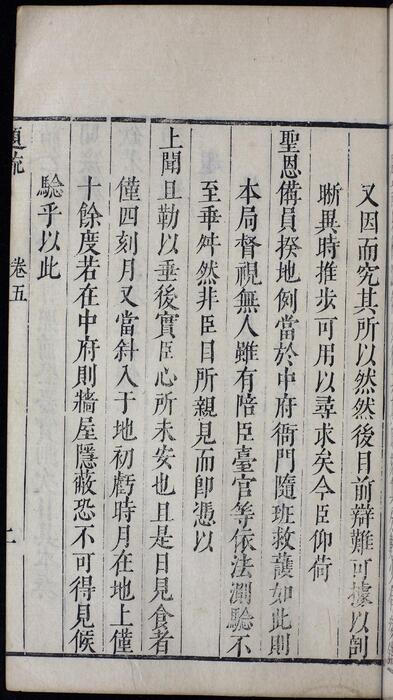 又因而究其所以然然後目前辯難可據以剖
晰異時推步可用以尋求矣今臣仰荷
聖恩備員揆地例當於中府衙門隨班救護如此則
本局督視無人雖有陪臣臺官等依法測驗不
至乖舛然非臣目所親見而即憑以
上聞且勒以垂後實臣心所未安也且是日見食者
僅四刻月又當斜入于地初虧時月在地上僅
十餘度若在中府則牆屋隱蔽恐不可得見候
驗乎以此
卷五